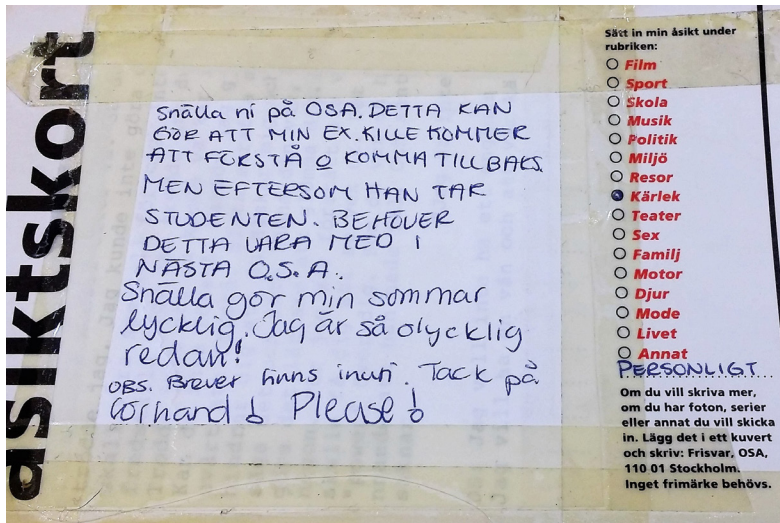 åsiktskort
Snälla ni på OSA. DETTA KAN
GÖR ATT MIN EX. KILLE KOMMER
ATT FÖRSTÅ O KOMMA TILLBAKS.
MEN EFTERSOM HAN TAR
STUDENTEN. BEHÖVER
DETTA VARA MED I
NÄSTA O.S.A.
Snälla gör min sommar
lycklig. Jag är så olycklig
redan!
OBS. Brevet finns inuti. Tack på
förhand! Please!
Sätt in min åsikt under
rubriken:
Film
Sport
Skola
Musik
Politik
Miljö
Resor
Kärlek
Teater
Sex
Familj
Motor
Djur
Mode
Livet
Annat
PERSONLIGT
Om du vill skriva mer,
om du har foton, serier
eller annat du vill skicka
in. Lägg det i ett kuvert
och skriv: Frisvar, OSA,
110 01 Stockholm.
Inget frimärke behövs.